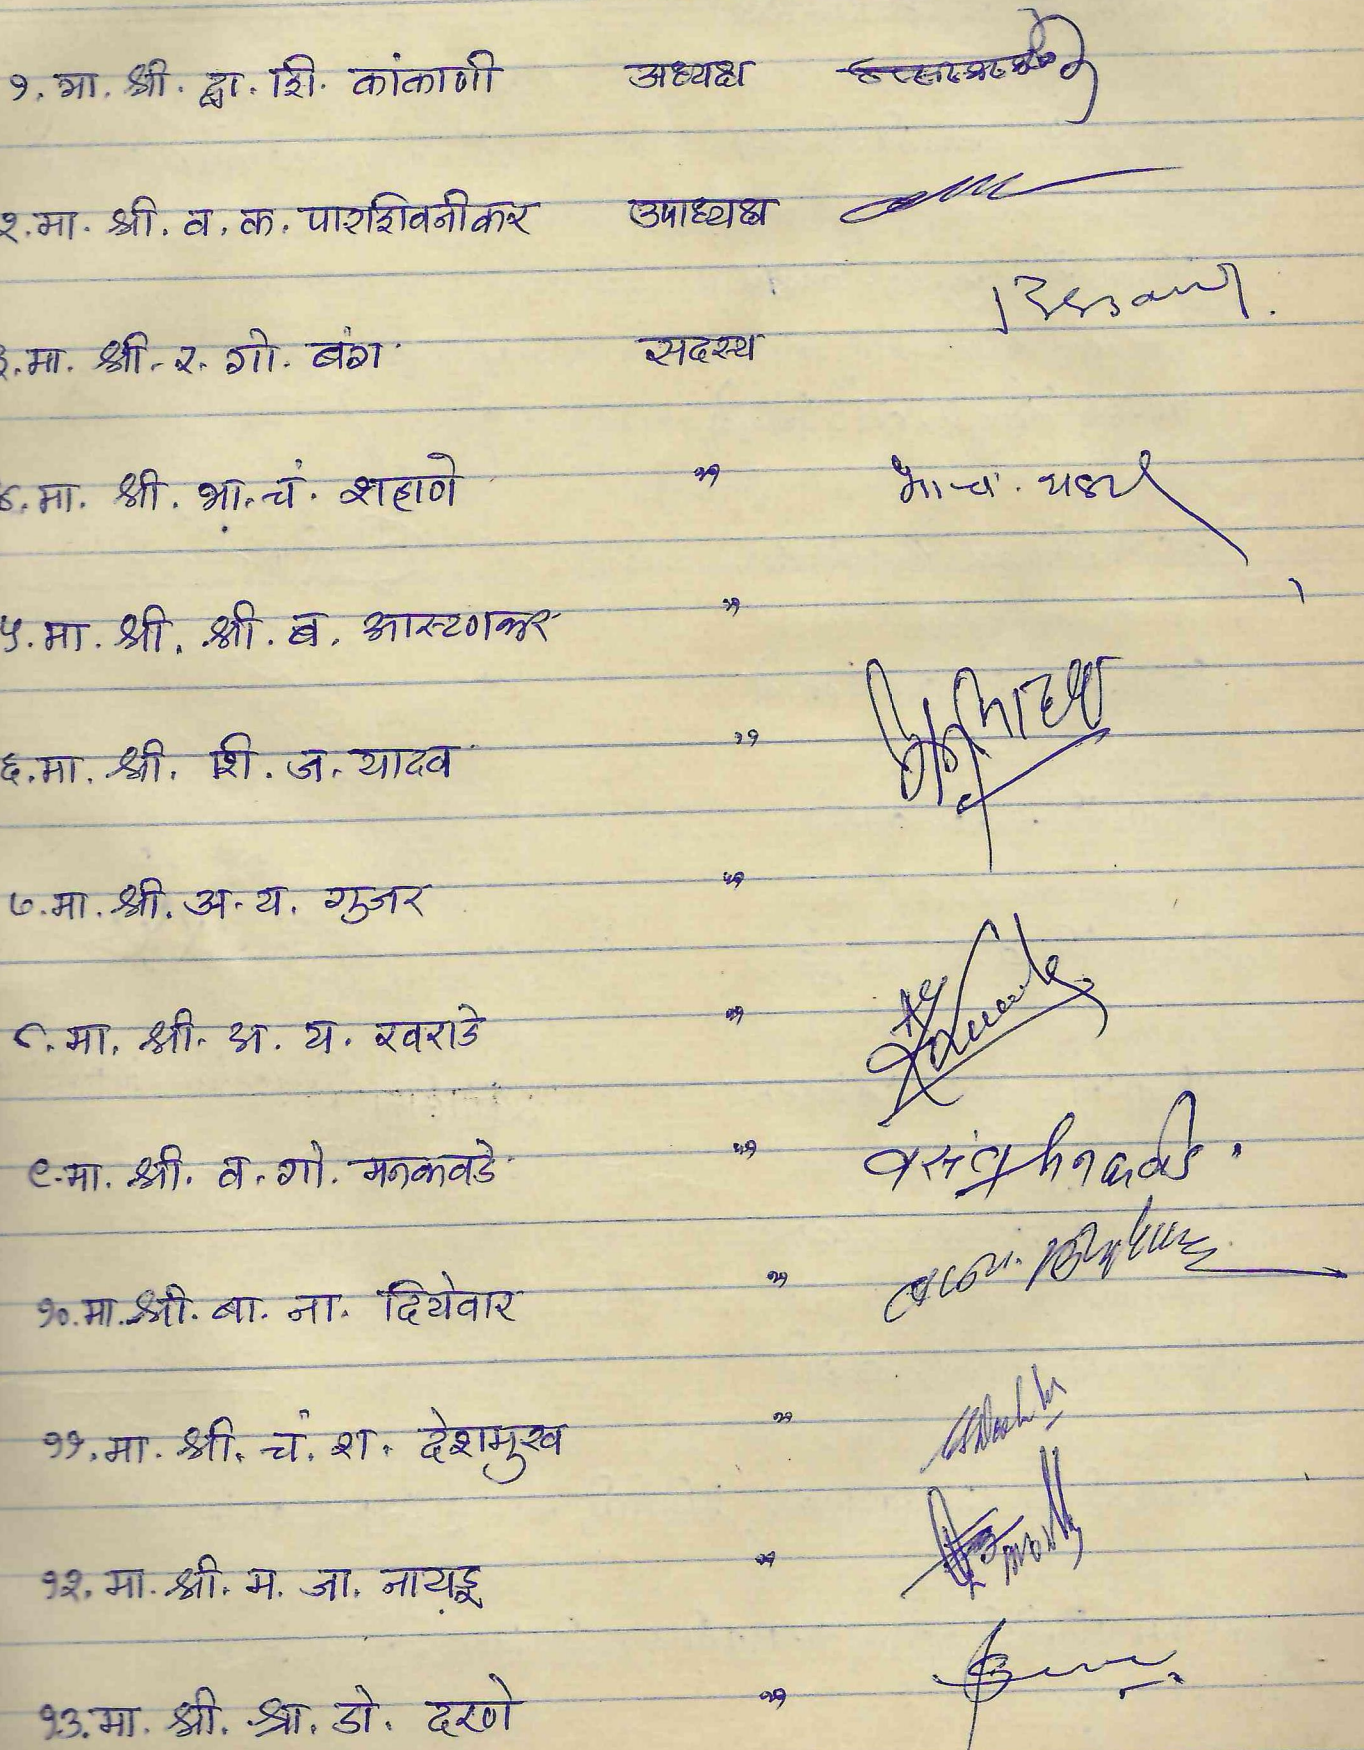 १. मा. श्री. द्वा. शि. कांकाणी अध्यक्ष
२. मा. श्री. व. क. पारशिवनीकर उपाध्यक्ष
३. मा. श्री. र. गो. बंग सदस्य
४. मा. श्री. भा. चं. शहाणे "
५. मा. श्री. श्री. ब. आस्टणकर "
६. मा. श्री. शि. ज. यादव "
७. मा. श्री. अ. य. गुजर "
८. मा. श्री. अ. य. खराडे "
९. मा. श्री. व. गो. मनकवडे "
१०. मा. श्री. बा. ना. दियेवार "
११. मा. श्री. चं. श. देशमुख "
१२. मा. श्री. म. जा. नायडू "
१३. मा. श्री. श्रा. डो. दरणे "